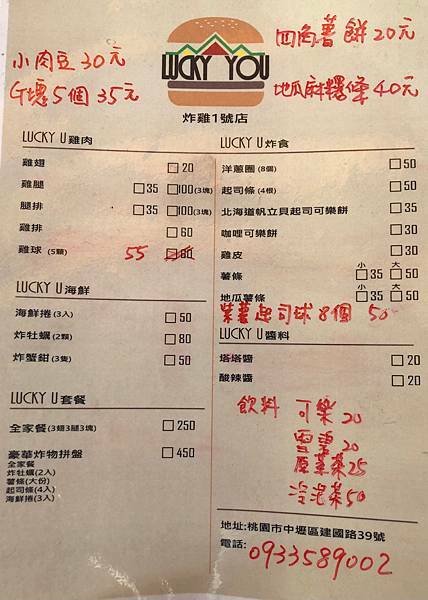 LUCKY YOU
炸雞1號店
小肉豆30元
G塊5個 35元
四角薯餅20元
地瓜麻糬條40元
LUCKY U 雞肉
雞翅 □20
雞腿 □35 □100(3塊)
腿排 □35 □100(3塊)
雞排 □60
雞球(5顆) 55 □80
LUCKY U 海鮮
海鮮捲(3入) □50
炸牡蠣(2顆) □80
炸蟹鉗(3隻) □50
LUCKY U 套餐
全家餐(3翅3腿3塊) □250
豪華炸物拼盤 □450
全家餐
炸牡蠣(2入)
薯條(大份)
起司條(4入)
海鮮捲(3入)
LUCKY U 炸食
洋蔥圈(8個) □50
起司條(4根) □50
北海道帆立貝起司可樂餅 □35
咖哩可樂餅 □30
雞皮 □30
薯條 小□35 大□50
地瓜薯條 小□35 大□50
紫薯起司球8個 50
LUCKY U 醬料
塔塔醬 □20
酸辣醬 □20
飲料 可樂20
雪碧20
原萃茶25
冷泡茶50
地址:桃園市中壢區建國路39號
電話: 0933589002